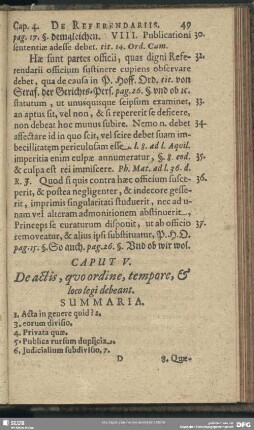 Cap. 4. DE REFERENDARIIS. 49
pag. 17. §. demgleichen. VIII. Publicationi 30.
sententiæ adesse debet. tit. 14. Ord. Cam.
Hæ sunt partes officii, quas digni Refe- 32.
rendarii officium sustinere cupiens observare
debet, qua de causa in P. Hoff. Ord. tit. von
Straf. der Gerichts-Pers. pag. 26. §. vnd ob ic.
statutum, ut unusquisque seipsum examinet, 33.
an aptus sit, vel non, & si repererit se deficere,
non debeat hoc munus subire. Nemo n. debet 34.
affectare id in quo scit, vel scire debet suam im-
becillitatem periculosam esse l. 8. ad l. Aquil.
imperitia enim culpæ annumeratur, §. 8. eod. 35.
& culpa est rei immiscere. Ph. Mat. ad l. 36. d.
R. J. Quod si quis contra hæc officium susce- 36.
perit, & postea negligenter, & indecore gesse-
rit, inprimis singularitati studuerit, nec ad u-
nam vel alteram admonitionem abstinuerit,
Princeps se curaturum disponit, ut ab officio 37.
removeatur, & alius ipsi substituatur, P. H. O.
pag. 15. §. So auch. pag. 26. §. Vnd ob wir wol.
CAPUT V.
De actis, qvo ordine, tempore, &
loco legi debeant.
SUMMARIA.
1. Acta in genere quid? 2.
3. eorum divisio.
4. Privata quæ.
5. Publica rursum duplicia.
6. Judicialium subdivisio, 7.
D 8. Quæ-
SLUB
DFG